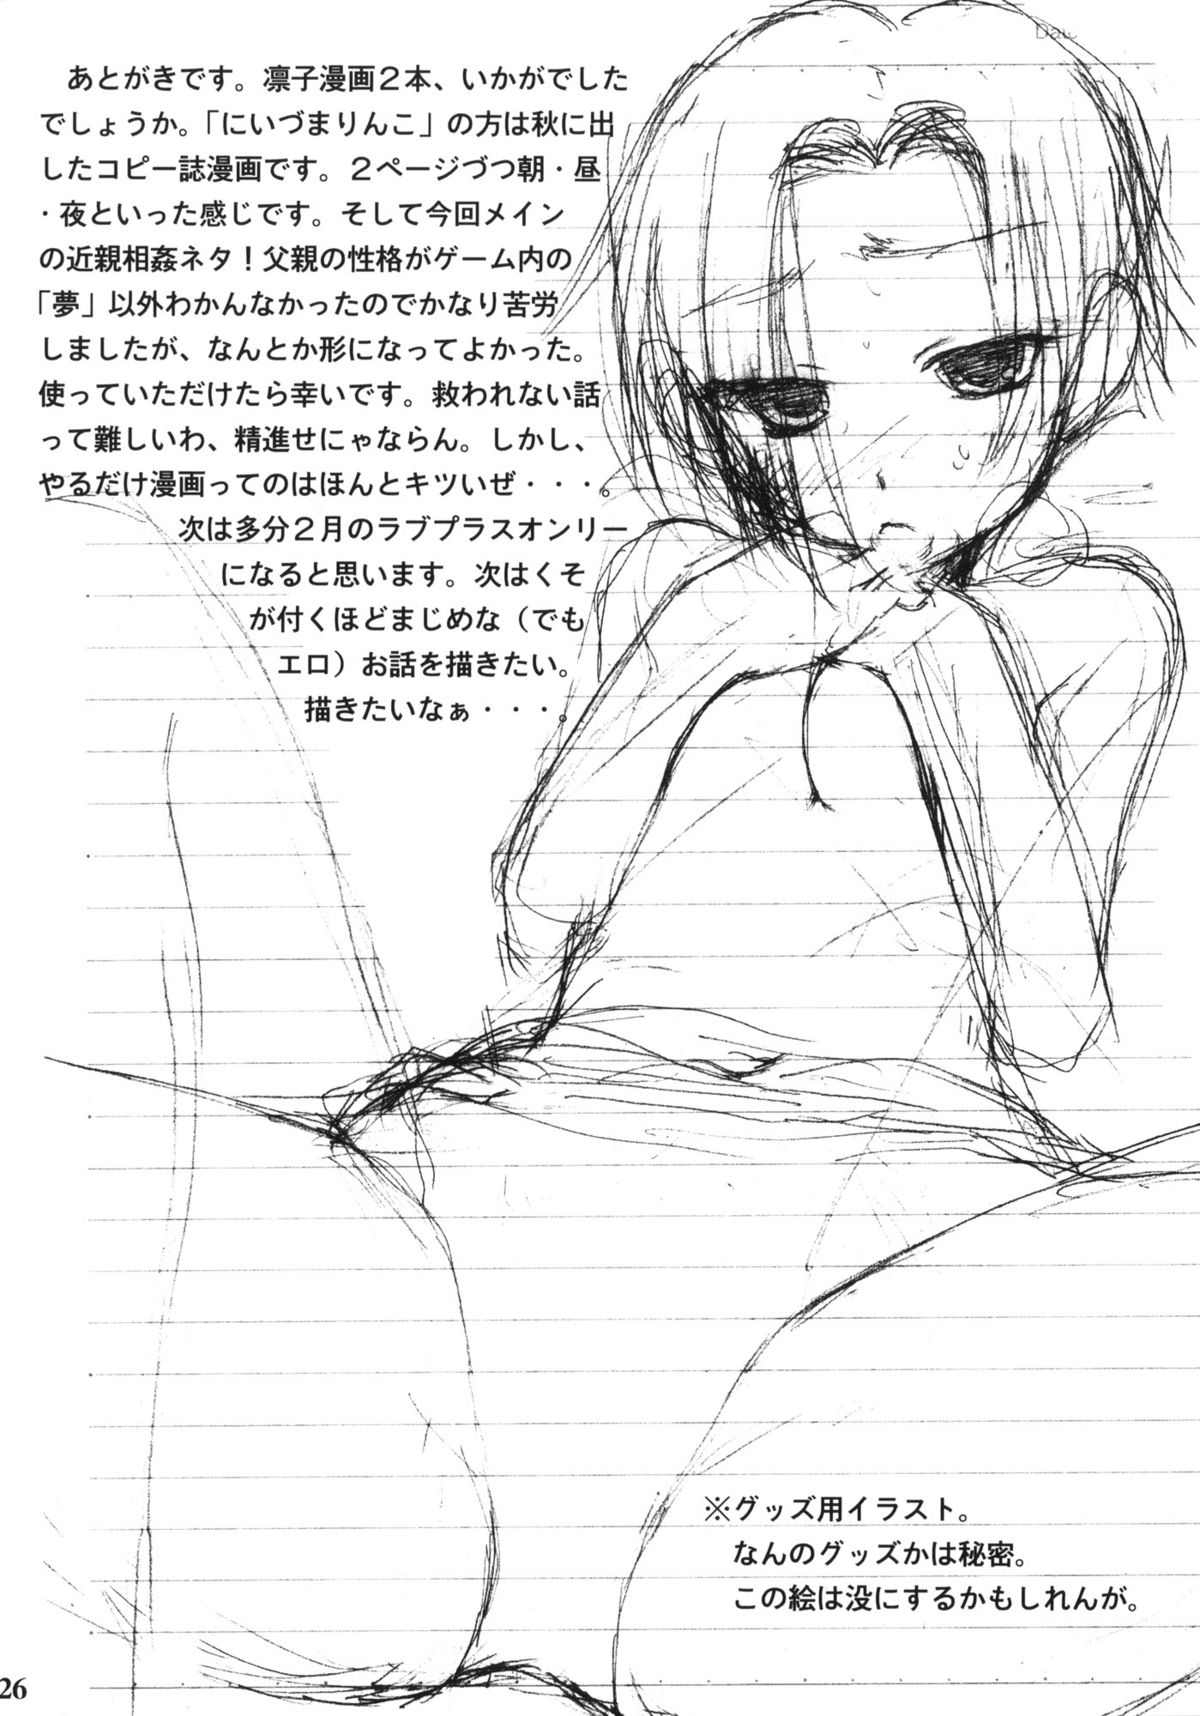 Da
あとがきです。凛子漫画２本、いかがでした
でしょうか。「にいづまりんこ」の方は秋に出
したコピー誌漫画です。２ページづつ朝・昼
・夜といった感じです。そして今回メイン
の近親相姦ネタ！父親の性格がゲーム内の
「夢」以外わかんなかったのでかなり苦労
しましたが、なんとか形になってよかった。
使っていただけたら幸いです。救われない話
って難しいわ、精進せにゃならん。しかし、
やるだけ漫画ってのはほんとキツいぜ・・・。
次は多分２月のラブプラスオンリー
になると思います。次はくそ
が付くほどまじめな（でも
エロ）お話を描きたい。
描きたいなぁ・・・。
※グッズ用イラスト。
なんのグッズかは秘密。
この絵は没にするかもしれんが。
26